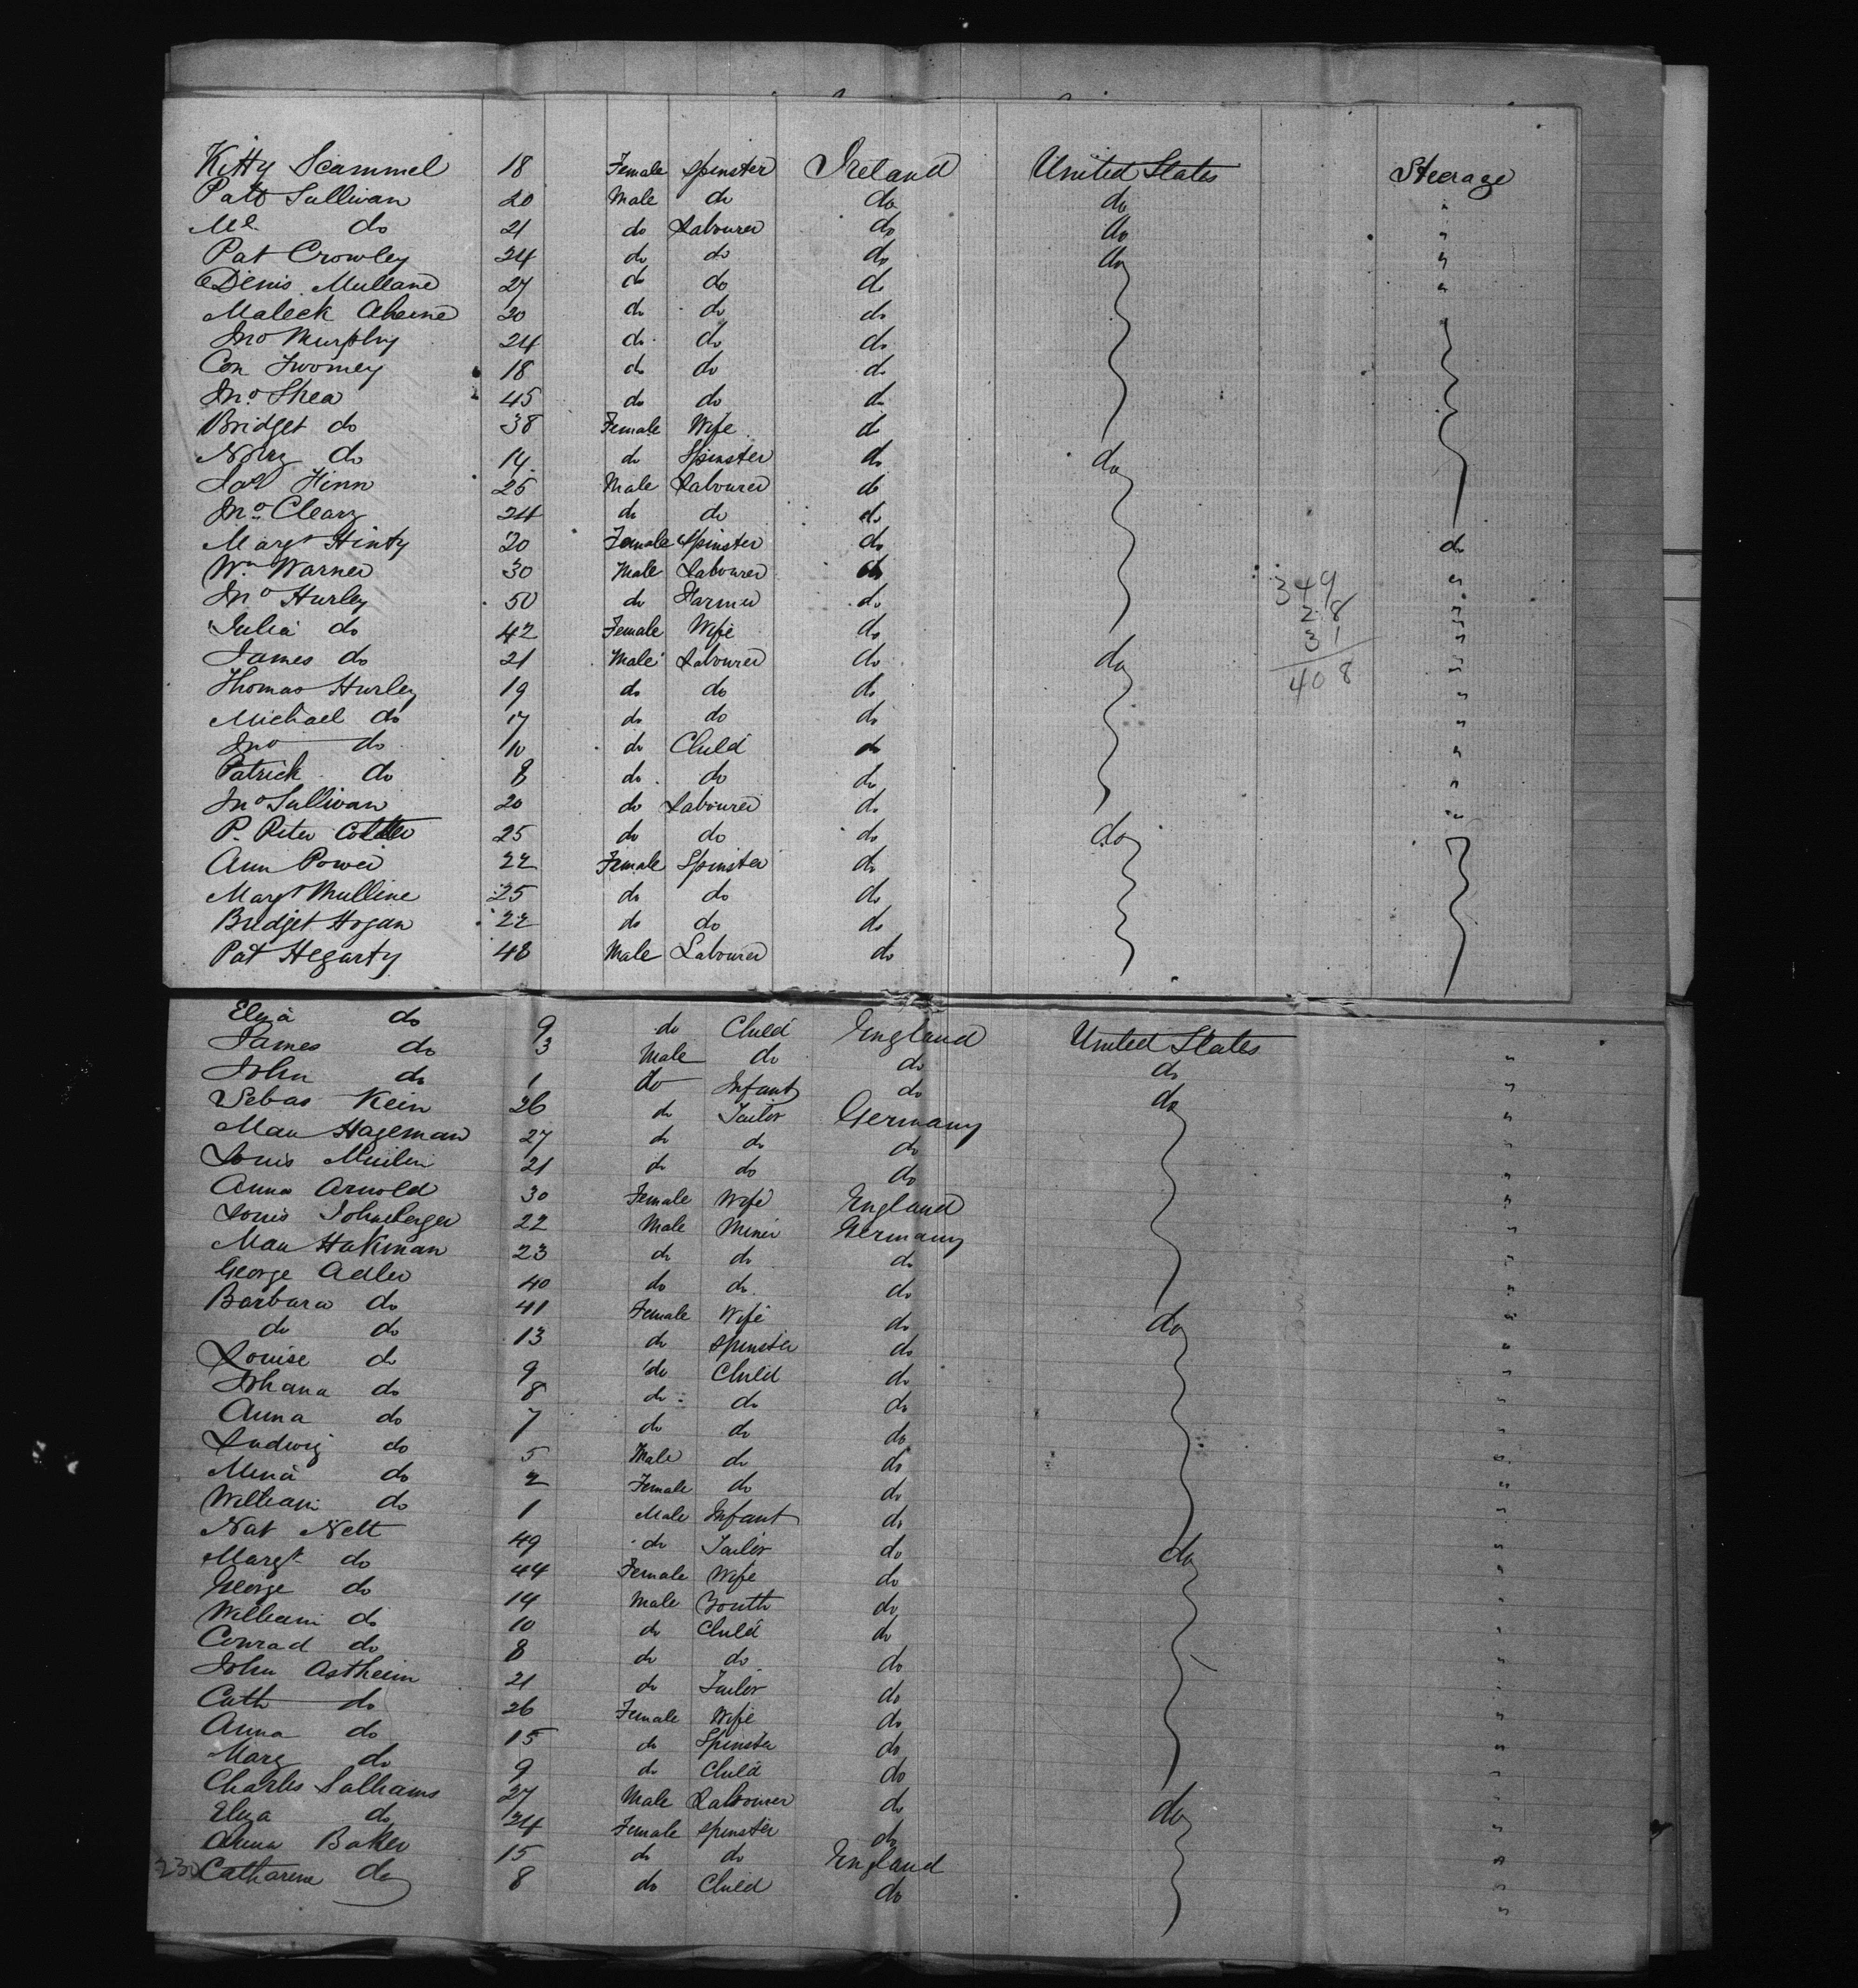 Kitty Scammel 18 Female Spinster Ireland United States Steerage
Patk Sullivan 20 Male do do do "
Ml do 21 do Labourer do do "
Pat Crowley 24 do do do do "
Denis Mullane 27 do do do "
Aherne 20 do do do
Jno Murphy 24 do do do
Con Twomey 18 do do do
Jno Shea 45 do do do
Bridget do 38 Female Wife do
Nory do 14 do Spinster do do
Finn 25 Male Labourer do
Jno Cleary 24 do do do
Margt Hinty 20 Female Spinster do do
Wm Warner 30 Male Labourer do "
Jno Hurley 50 do Farmer do "
Julia do 42 Female Wife do "
James do 21 Male Labourer do do "
Thomas Hurley 19 do do do "
Michael do 17 do do do "
Jno do 10 do Child do "
Patrick do 8 do do do "
Jno Sullivan 20 do Labourer do "
P. Peter 25 do do do do
Ann Power 22 Female Spinster do
Margt Mulline 25 do do do
Bridget Hogan 22 do do do
Pat Hegarty 48 Male Labourer do
349
28
31
408
Eliza do 9 do Child England United States "
James do 3 Male do do do "
John do 1 do Infant do do "
Sebas Kein 26 do Tailor Germany "
Max Hageman 27 do do do "
Louis 21 do do do "
Anna Arnold 30 Female Wife England "
Louis 22 Male Miner Germany "
Max Hakman 23 do do do "
George Adler 40 do do do "
Barbara do 41 Female Wife do do "
do do 13 do Spinster do "
Louise do 9 do Child do "
Johana do 8 do do do "
Anna do 7 do do do "
Ludwig do 5 Male do do "
Mina do 2 Female do do "
William do 1 Male Infant do "
Nat Nett 49 do Tailor do do "
Margt do 44 Female Wife do "
George do 14 Male Youth do "
William do 10 do Child do "
Conrad do 8 do do do "
John Astheim 21 do Tailor do "
Cath do 26 Female Wife do "
Anna do 15 do Spinster do "
Mary do 9 do Child do "
Charles 27 Male Labourer do do "
Eliza do 24 Female Spinster do "
Anna Baker 15 do do England "
Catharine do 8 do Child do "